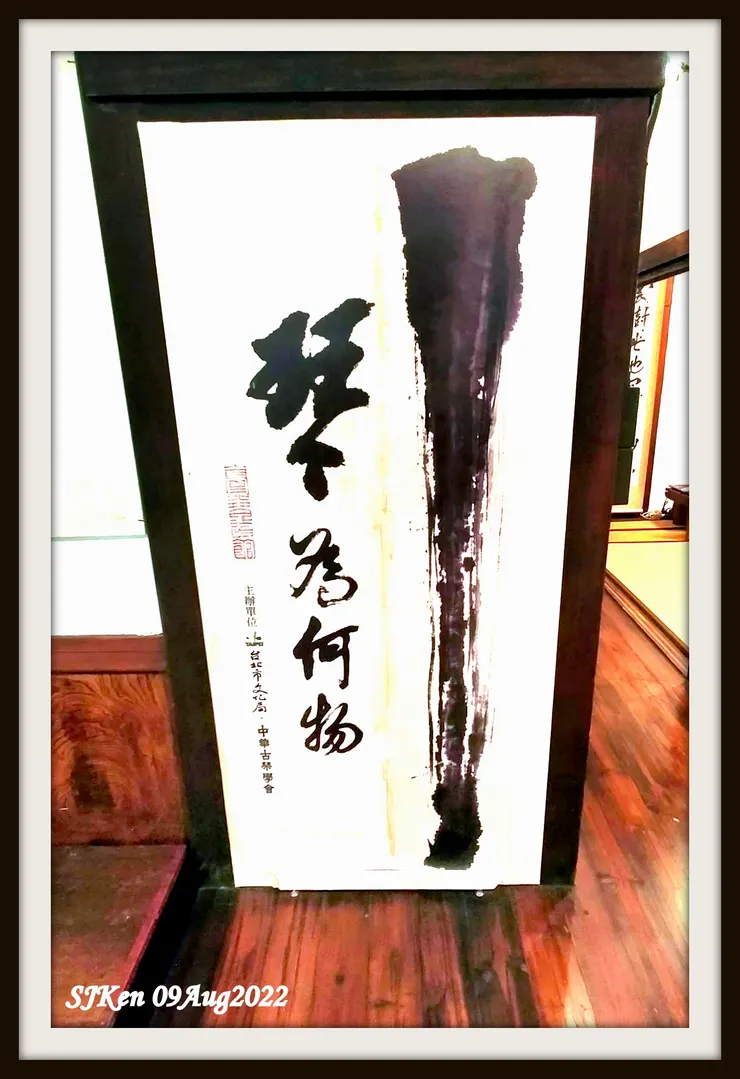 琴為何物
主辦單位 台北市文化局・中華古琴學會
SJKen 09Aug2022